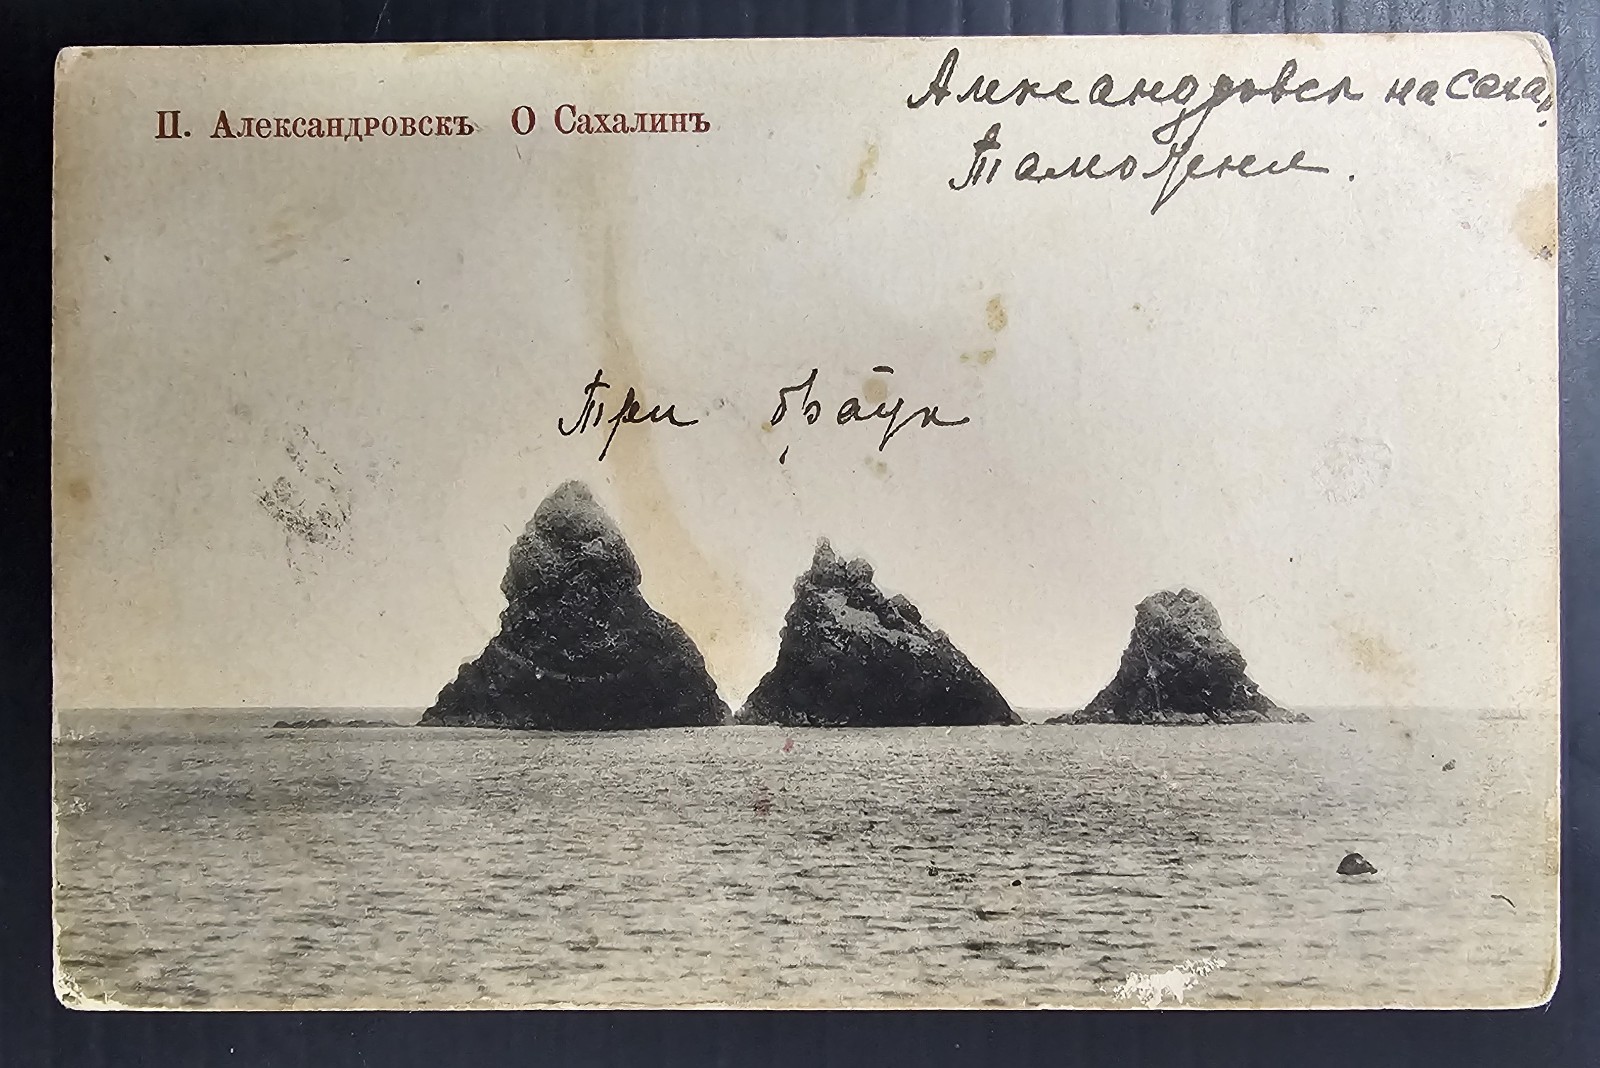 П. Александровскъ О Сахалинъ
Александровск на Саха,
Таможни.
Три